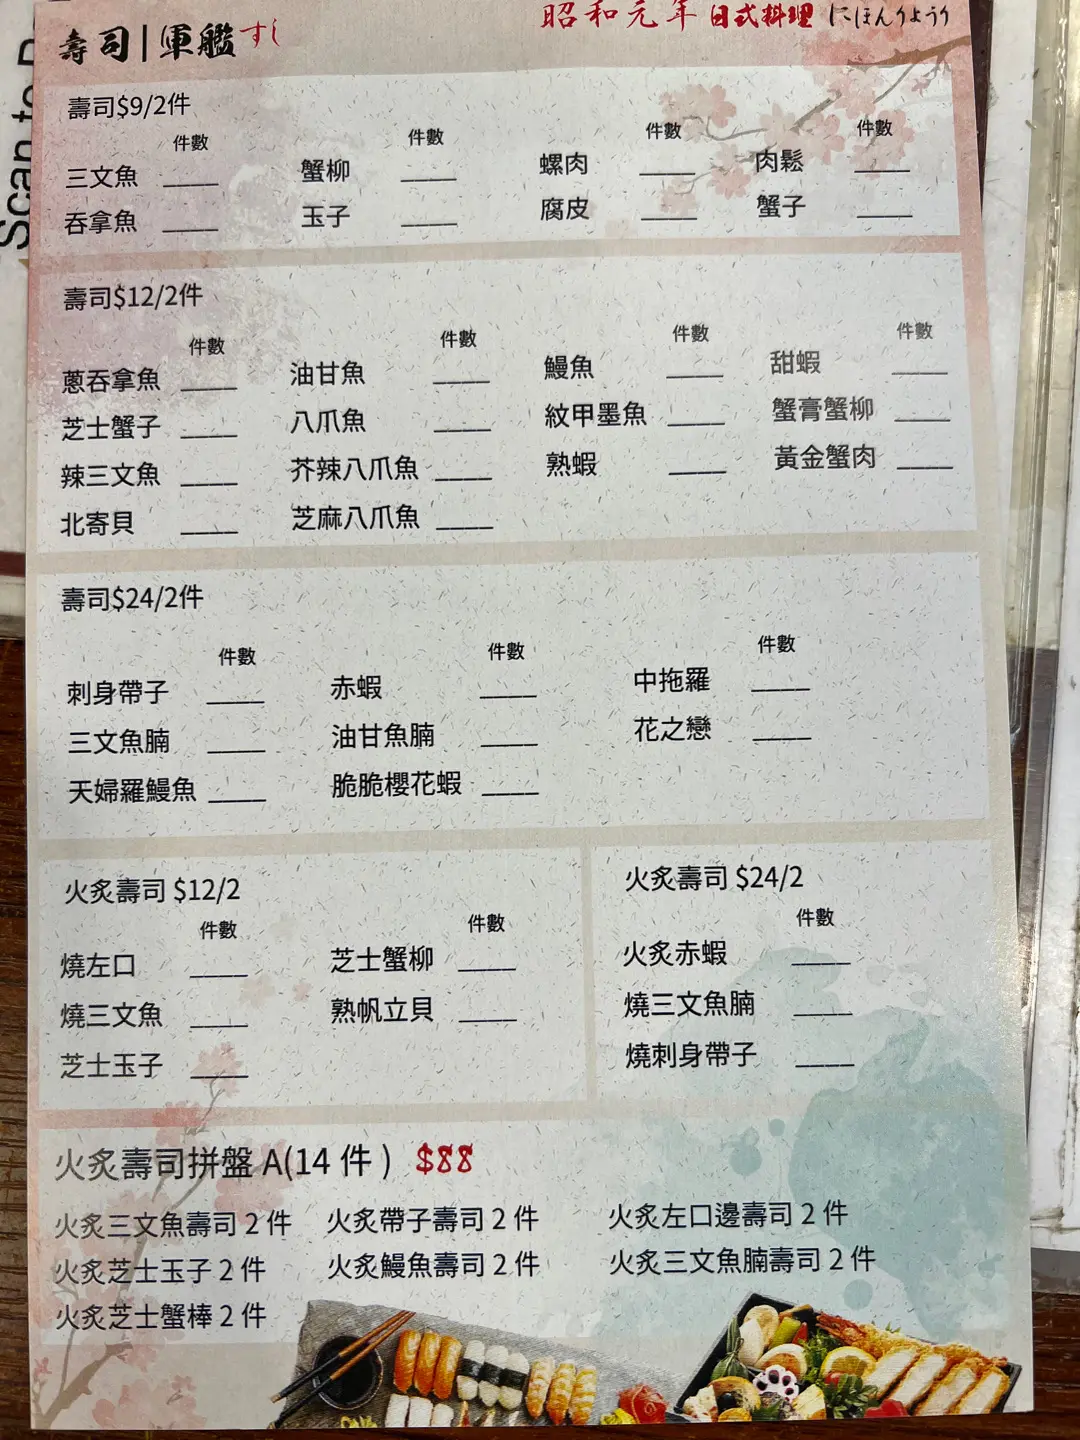 昭和元年 日式料理 にほんりょうり
壽司|軍艦すし
壽司$9/2件
件數 件數 件數 件數
三文魚 ____ 蟹柳 ____ 螺肉 ____ 肉鬆 ____
吞拿魚 ____ 玉子 ____ 腐皮 ____ 蟹子 ____
壽司$12/2件
件數 件數 件數 件數
蔥吞拿魚 ____ 油甘魚 ____ 鰻魚 ____ 甜蝦 ____
芝士蟹子 ____ 八爪魚 ____ 紋甲墨魚 ____ 蟹膏蟹柳 ____
辣三文魚 ____ 芥辣八爪魚 ____ 熟蝦 ____ 黃金蟹肉 ____
北寄貝 ____ 芝麻八爪魚 ____
壽司$24/2件
件數 件數 件數
刺身帶子 ____ 赤蝦 ____ 中拖羅 ____
三文魚腩 ____ 油甘魚腩 ____ 花之戀 ____
天婦羅鰻魚 ____ 脆脆櫻花蝦 ____
火炙壽司 $12/2
件數 件數
燒左口 ____ 芝士蟹柳 ____
燒三文魚 ____ 熟帆立貝 ____
芝士玉子 ____
火炙壽司 $24/2
件數
火炙赤蝦 ____
燒三文魚腩 ____
燒刺身帶子 ____
火炙壽司拼盤 A(14 件) $88
火炙三文魚壽司 2 件 火炙帶子壽司 2 件 火炙左口邊壽司 2 件
火炙芝士玉子 2 件 火炙鰻魚壽司 2 件 火炙三文魚腩壽司 2 件
火炙芝士蟹棒 2 件
Scan to